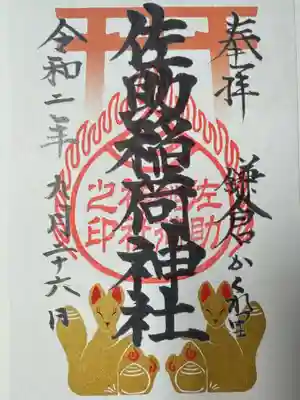 奉拝
鎌倉かくれ里
佐助稲荷神社
佐助
稲荷
神社
之印
令和二年
九月二十六日